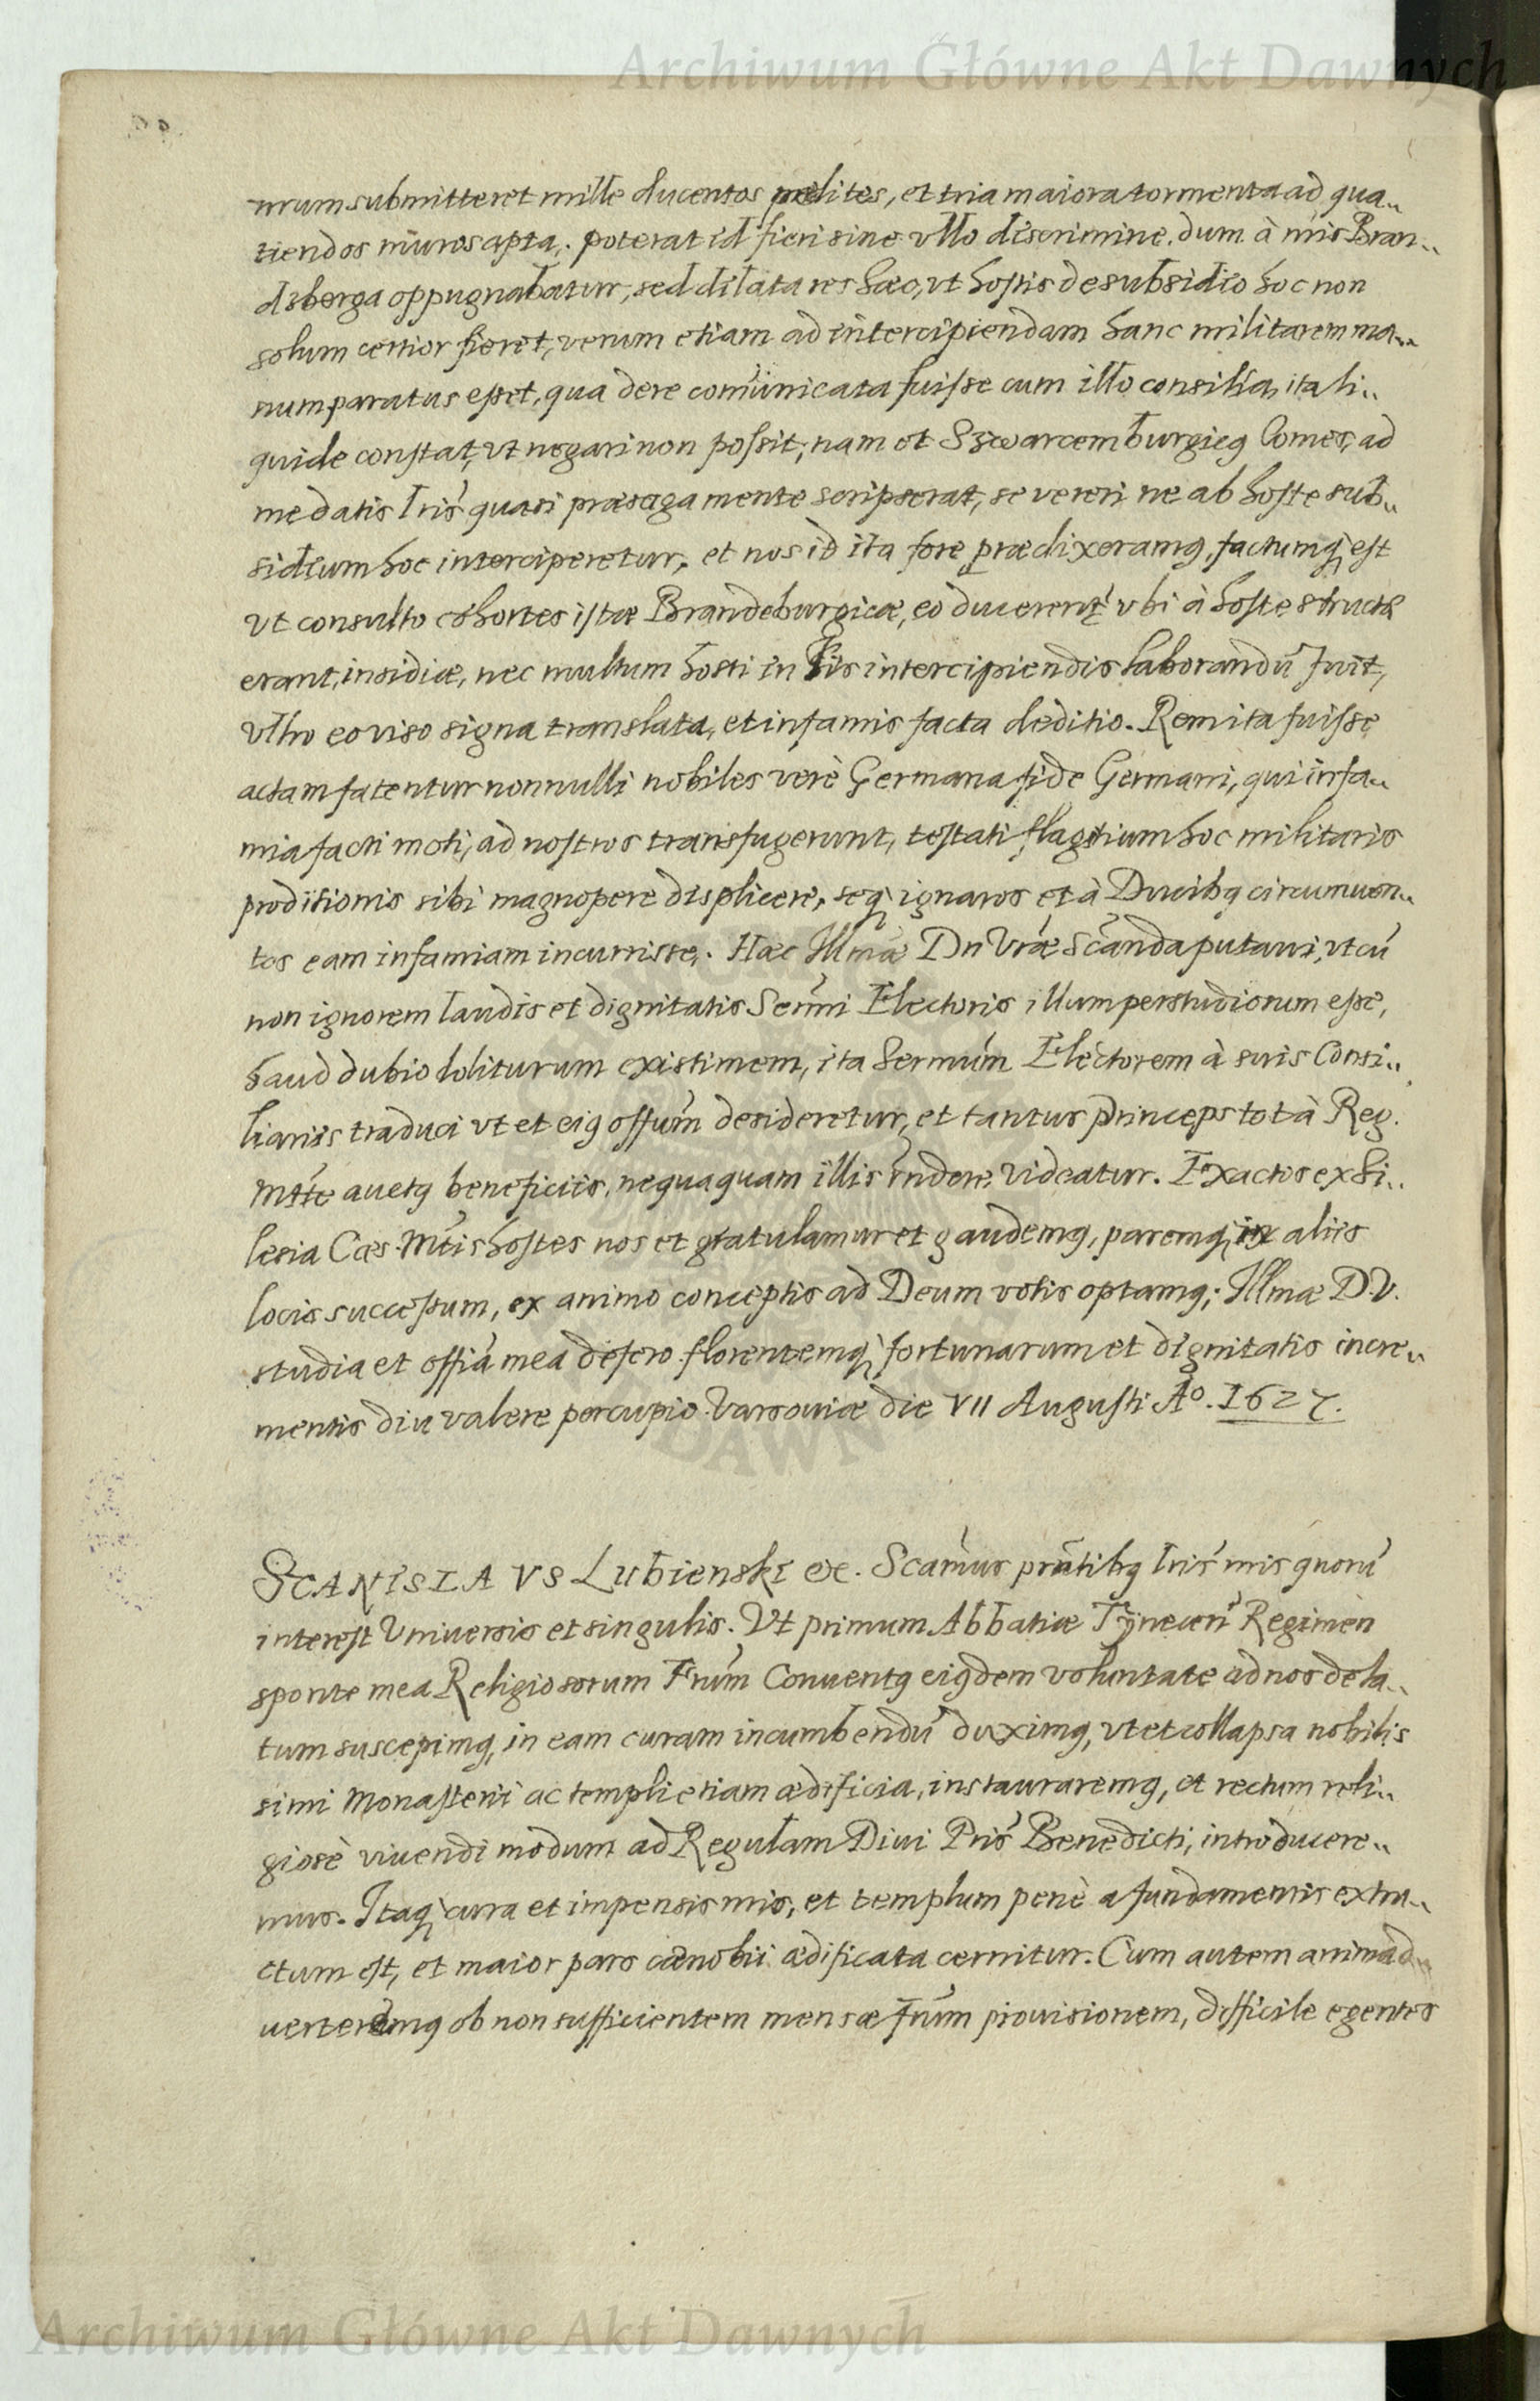 Archiwum Główne Akt Dawnych
nrum submitteret mille ducentos pedites, et tria maiora tormenta ad qua„
tiendos muros apta. poterat id fieri sine vllo discrimine. dum à nris Bran„
disberga oppugnabatur, sed dilata res haec, vt hostis de subsidio hoc non
solum certior fieret, verum etiam ad intercipiendam hanc militarem ma„
num paratus esset, qua de re comunicata fuisse cum illo consilia, ita li„
quide constat, vt negari non possit, nam et Szwarcemburgicq Comes, ad
me datis lris quasi praesaga mente scripserat, se vereri ne ab hoste sub„
sidium hoc interciperetur, et nos id ita fore praedixeramq, factumq est
vt consulto cohortes istae Brandeburgicae, eo ducerent vbi à hoste structae
erant, insidiae, nec multum hosti in his intercipiendis laborandū fuit,
vltro eo viso signa translata, et infamis facta deditio. Rem ita fuisse
actam fatentur nonnulli nobiles verè Germana fide Germani, qui infa„
mia facti moti, ad nostros transfugerunt, testati flagitium hoc militaris
proditionis sibi magnopere displicere, seq ignaros et à Ducibq circumuen„
tos eam infamiam incurrisse. Haec Illmae Dn Vrae Scānda putaui, vt cū
non ignorem laudis et dignitatis Sermi Electoris illum perstudiosum esse,
haud dubio doliturum existimem, ita Sermum Electorem à suis Consi„
liariis traduci vt et eiq offum desideretur, et tantus princeps tot à Reg.
Mtte auctq beneficiis, nequaquam illis rndere videatur. Exactos ex Si„
lesia Caes. Mtis hostes nos et gratulamur et gaudemq, paremq in aliis
locis successum, ex animo conceptis ad Deum votis optamq; Illmae D. V.
studia et offia mea defero florentemq fortunarum et dignitatis incre„
mentis diu valere percupio. Varsouiae die VII Augusti Aº. 1627.
STANISLAVS Lubienski etc. Scamus pntibq lris nris quorū
interest Vniuersis et singulis. Vt primum Abbatiae Tynecen Regimen
sponte mea Religiosorum Frum Conuentq eiqdem voluntate ad nos dela„
tum suscepimq, in eam curam incumbendū duximq, vt et collapsa nobilis
simi Monasterii ac templi etiam aedificia, instauraremq, et rectum reli„
giosè viuendi modum ad Regulam Diui Pris Benedicti, introducere„
mus. Itaq cura et impensis nris, et templum penè a fundamentis extru„
ctum est, et maior pars caenobii aedificata cernitur. Cum autem animad„
uerteremq ob non sufficientem mensae Frum prouisionem, difficile egentes
Archiwum Główne Akt Dawnych